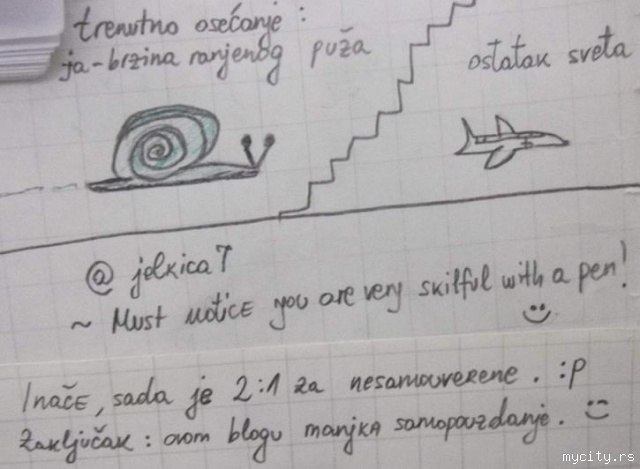 trenutno osećanje:
ja-brzina ranjenog puža
ostatak sveta
@ jelkica7
~ Must notice you are very skilful with a pen!
Inače, sada je 2:1 za nesamouverene. :P
Zaključak: ovom blogu manjka samopouzdanje.
mycity.rs